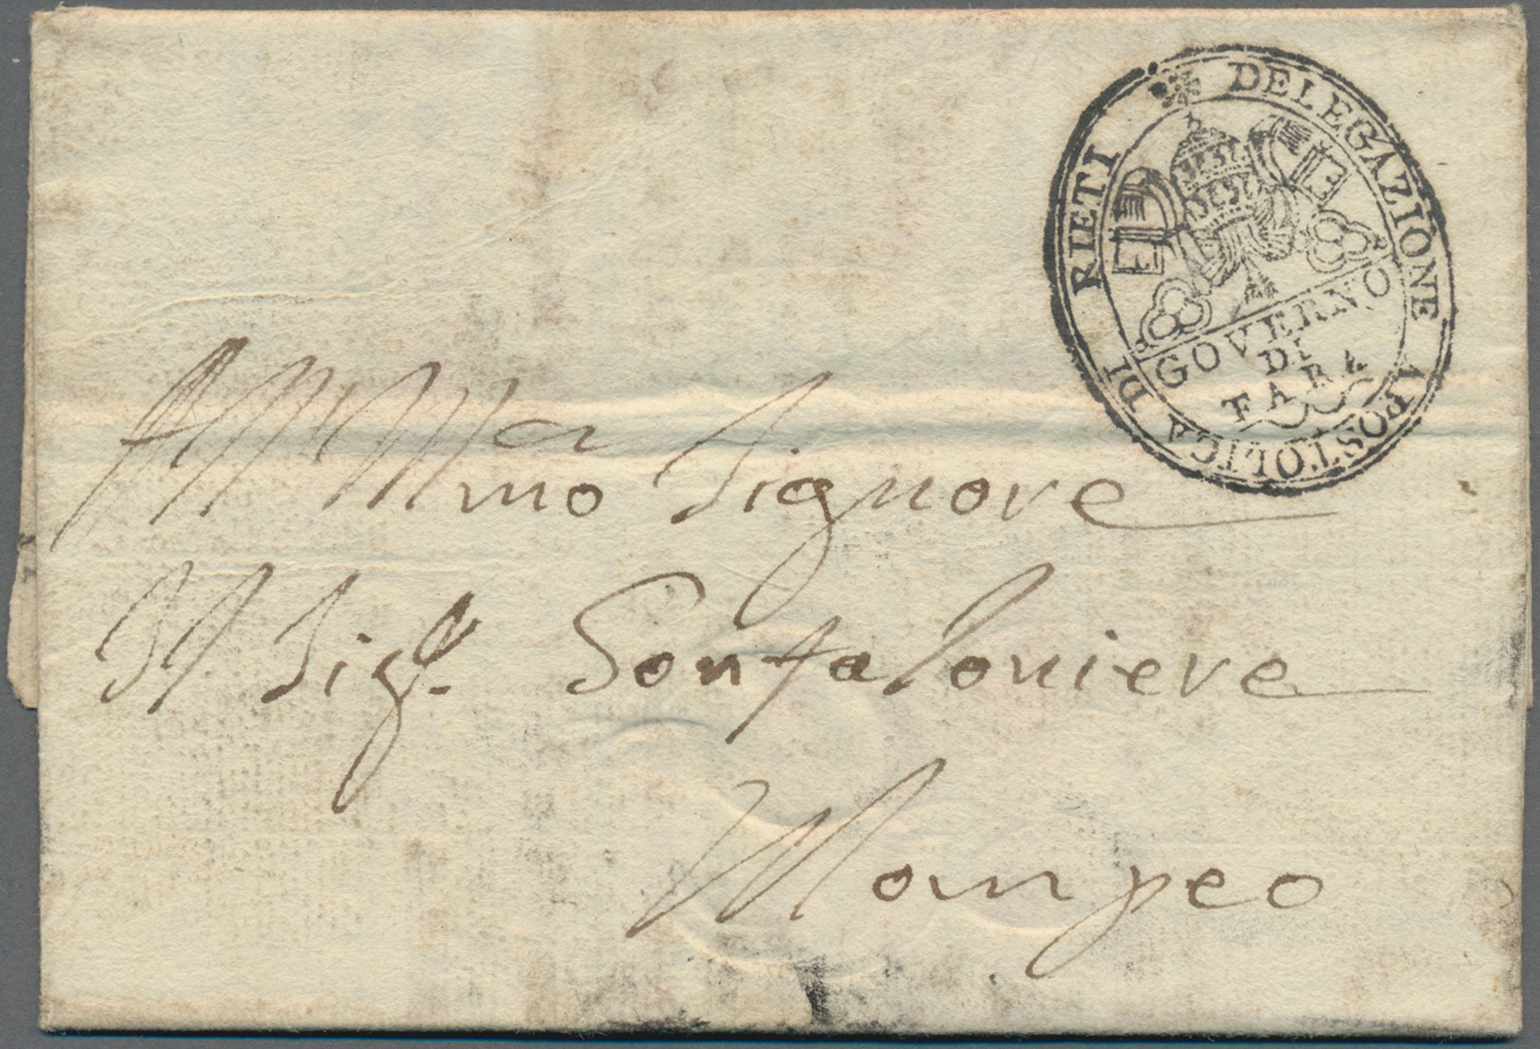 DELEGAZIONE APOSTOLICA DI RIETI
GOVERNO
DI
FARA
Signore
Il Sigr. Gonfaloniere
Mompeo